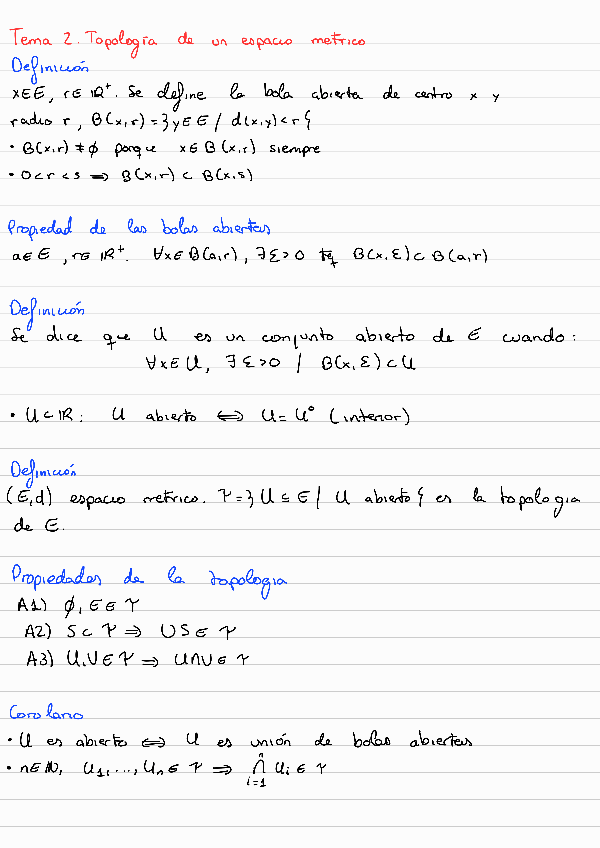 Tema 2. Topología de un espacio metrico
Definición
x∈E, r∈ℝ⁺. Se define la bola abierta de centro x y
radio r, B(x,r)={y∈E / d(x,y)<r}
· B(x,r) ≠ ∅ porque x∈B(x,r) siempre
· 0<r<s ⟹ B(x,r) ⊂ B(x,s)
Propiedad de las bolas abiertas
a∈E, r∈ℝ⁺. ∀x∈B(a,r), ∃ε>0 tq B(x,ε)⊂B(a,r)
Definición
Se dice que U es un conjunto abierto de E cuando:
∀x∈U, ∃ε>0 / B(x,ε)⊂U
· U⊂ℝ: U abierto ⟺ U=U° (interior)
Definición
(E,d) espacio metrico. τ={U⊆E / U abierto} es la topologia
de E.
Propiedades de la topologia
A1) ∅,E∈τ
A2) S⊂τ ⟹ ∪S∈τ
A3) U,V∈τ ⟹ U∩V∈τ
Corolario
· U es abierto ⟺ U es unión de bolas abiertas
· n∈ℕ, U₁,...,Uₙ∈τ ⟹ ⋂ᵢ₌₁ⁿ Uᵢ∈τ